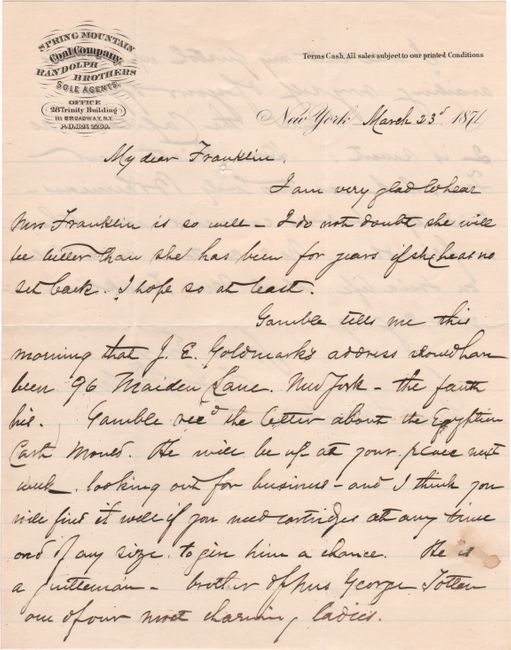 SPRING MOUNTAIN
Coal Company,
RANDOLPH
BROTHERS
SOLE AGENTS.
OFFICE
28 Trinity Building
111 BROADWAY, N.Y.
P.O. BOX
Terms Cash. All sales subject to our printed Conditions
New York March 23d 1871
My dear Franklin.
I am very glad to hear
Mrs Franklin is so well - I do not doubt she will
be better than she has been for years if she has no
set back. I hope so at least.
Gamble tells me this
morning that J. E. Goldmark's address should have
been 96 Maiden Lane. New York - the fault
his. Gamble recd the letter about the Egyptian
He will be up at your place next
week, looking out for business - and I think you
will find it well if you need cartridges at any time
and of any size to give him a chance. He is
a gentleman - brother of Mrs George Totten
one of our most charming ladies.